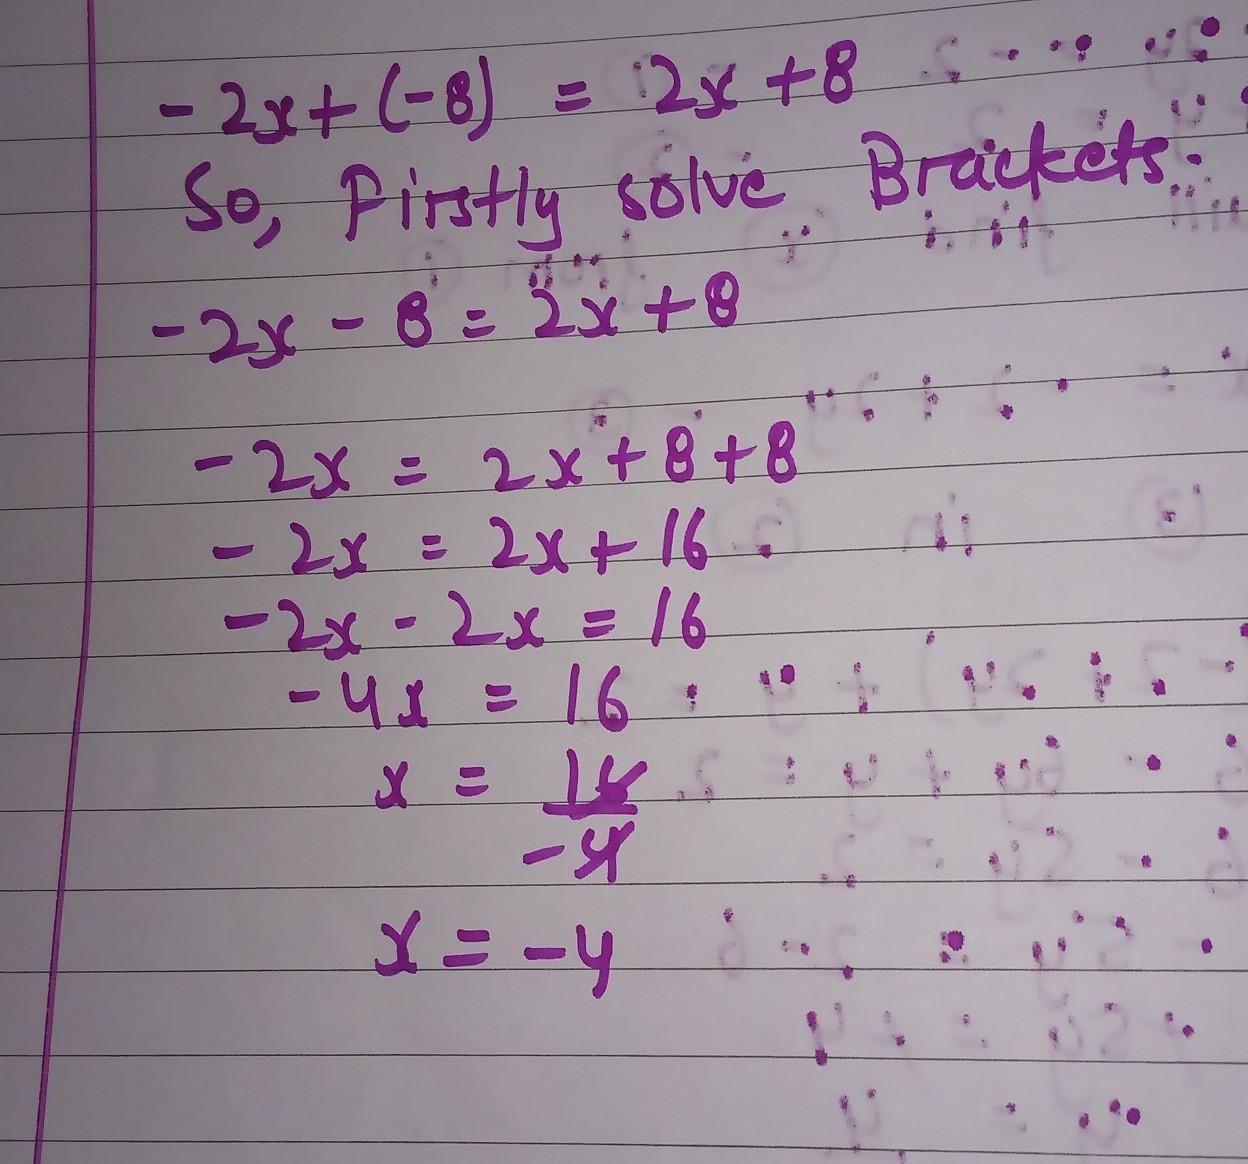 -2x+(-8) = 2x+8
So, Firstly solve Brackets.
-2x-8=2x+8
-2x = 2x+8+8
-2x = 2x+16
-2x-2x=16
-4x = 16
x = 16
-4
x = -4